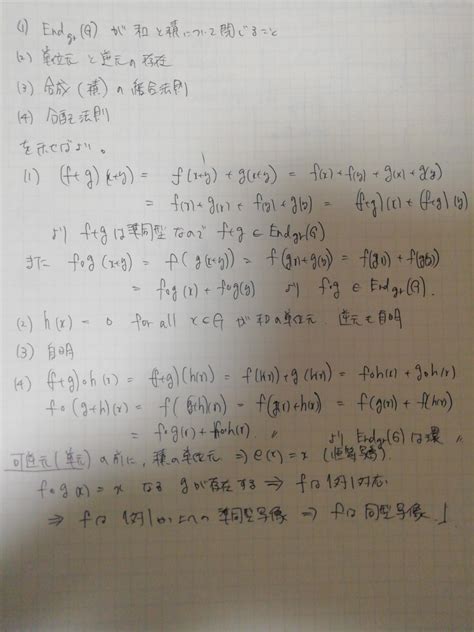 (1) End_gr(G) が和と積について閉じること
(2) 単位元と逆元の存在
(3) 合成(積)の結合法則
(4) 分配法則
を示せばよい。
(1) (f+g)(x+y) = f(x+y) + g(x+y) = f(x)+f(y)+g(x)+g(y)
= f(x)+g(x)+f(y)+g(y) = (f+g)(x)+(f+g)(y)
より f+g は準同型なので f+g ∈ End_gr(G)
また f∘g(x+y) = f(g(x+y)) = f(g(x)+g(y)) = f(g(x))+f(g(y))
= f∘g(x)+f∘g(y) より f∘g ∈ End_gr(G).
(2) h(x) = 0 for all x∈G が和の単位元. 逆元も自明
(3) 自明
(4) (f+g)∘h(x) = (f+g)(h(x)) = f(h(x))+g(h(x)) = f∘h(x)+g∘h(x)
f∘(g+h)(x) = f((g+h)(x)) = f(g(x)+h(x)) = f(g(x))+f(h(x))
= f∘g(x)+f∘h(x). 〃 より End_gr(G) は環
可逆元(単元)の前に, 積の単位元 ⇒ e(x)=x (恒等写像).
f∘g(x) = x なる g が存在する ⇒ f は1対1対応
⇒ f は1対1かつ上への準同型写像 ⇒ f は同型写像.